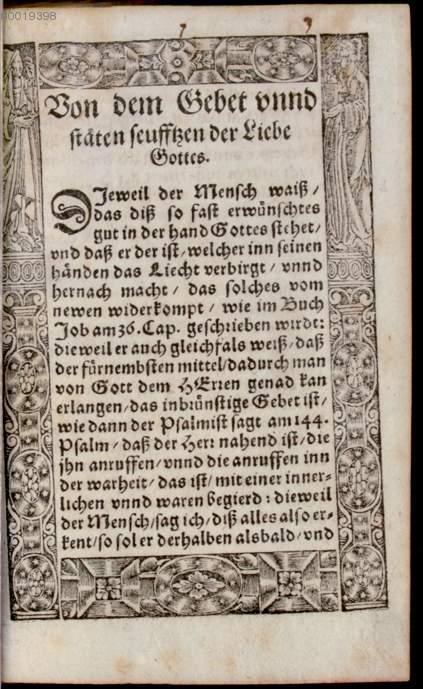 00019398
Von dem Gebet vnnd
stäten seufftzen der Liebe
Gottes.
DJeweil der Mensch waiß /
das diß so fast erwünschtes
gut in der hand Gottes stehet /
vnd daß er der ist / welcher inn seinen
händen das Liecht verbirgt / vnnd
hernach macht / das solches vom
newen widerkompt / wie im Buch
Job am 36. Cap. geschrieben wirdt:
dieweil er auch gleichfals weiß / daß
der fürnembsten mittel / dadurch man
von Gott dem HErren genad kan
erlangen / das inbrünstige Gebet ist /
wie dann der Psalmist sagt am 144.
Psalm / daß der Herr nahend ist / die
jhn anruffen / vnnd die anruffen inn
der warheit / das ist / mit einer inner-
lichen vnnd waren begierd : dieweil
der Mensch / sag ich / diß alles also er-
kent / so sol er derhalben alsbald / vnd